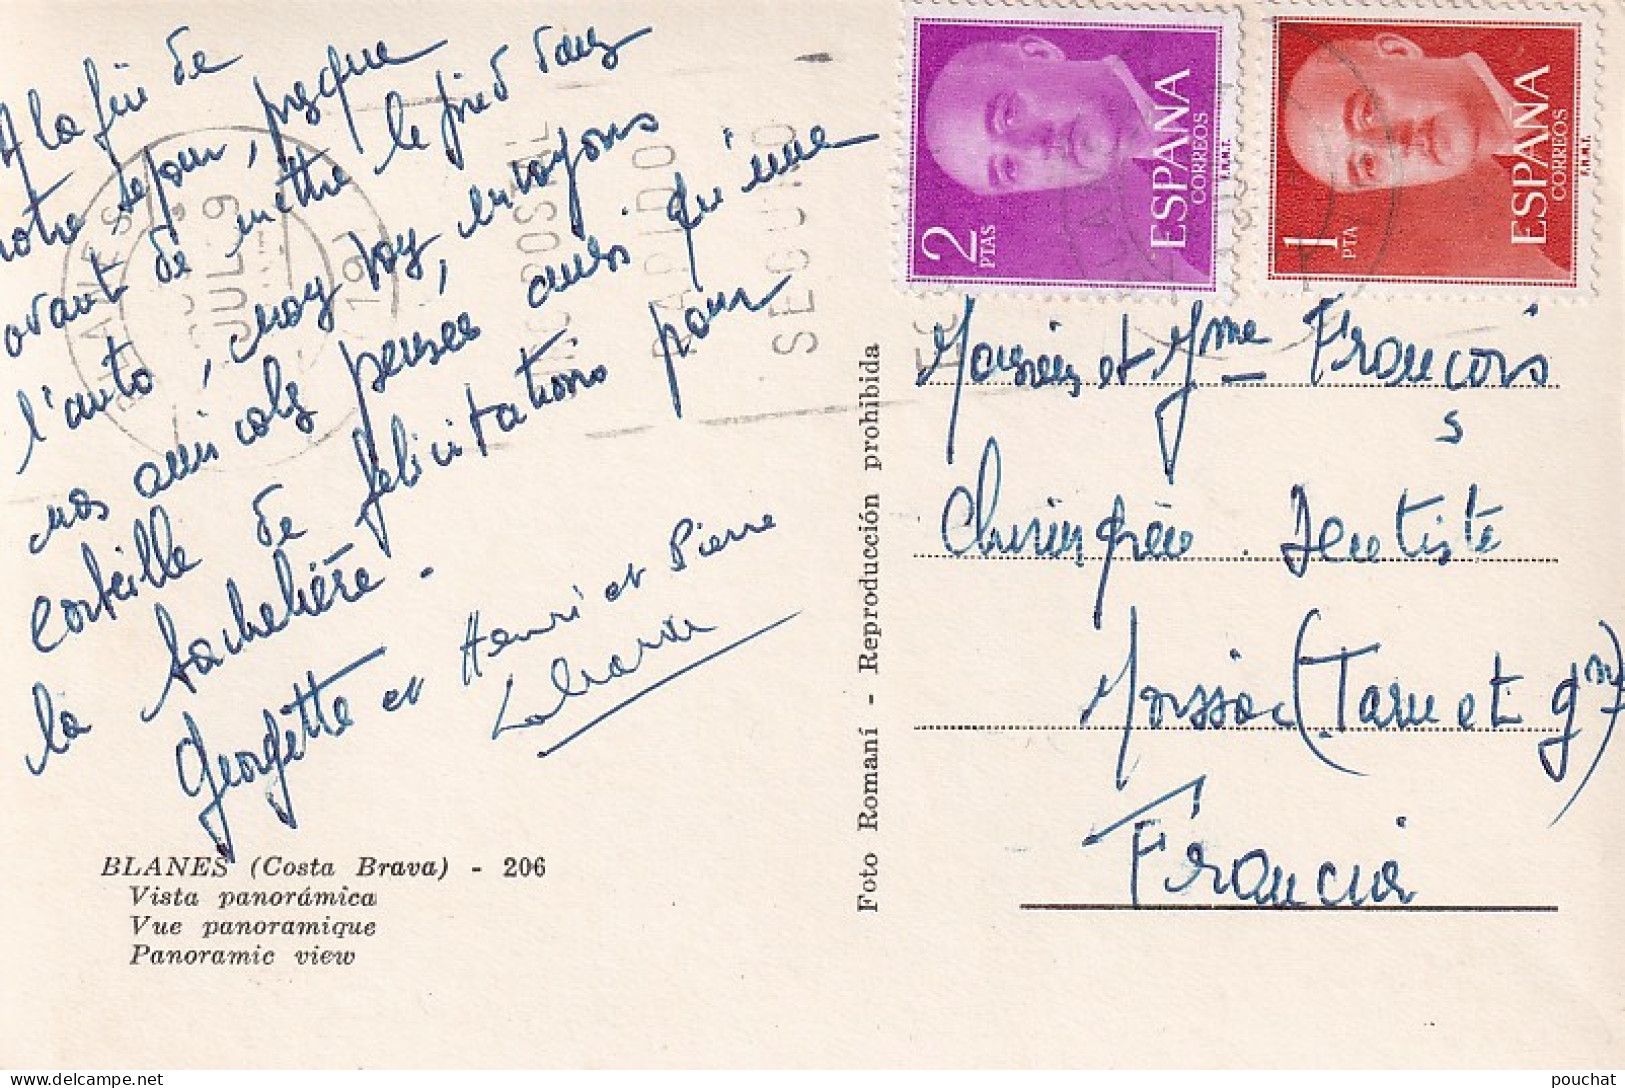 A la fin de
notre séjour, presque
avant de mettre le pied dans
l'auto, envoyons
nos amicales pensées
corbeille de félicitations pour
la bachelière.
Georgette et Henri et Pierre
BLANES (Costa Brava) - 206
Vista panorámica
Vue panoramique
Panoramic view
Foto Romaní - Reproducción prohibida
2 PTAS
ESPAÑA
CORREOS
F.N.M.T.
1 PTA
ESPAÑA
CORREOS
F.N.M.T.
BLANES
JUL. 9
RAPIDO
SEGURO
Monsieur et Mme François
s
Chirurgien. Dentiste
Moissac (Tarn et Gne)
Francia
pouchat